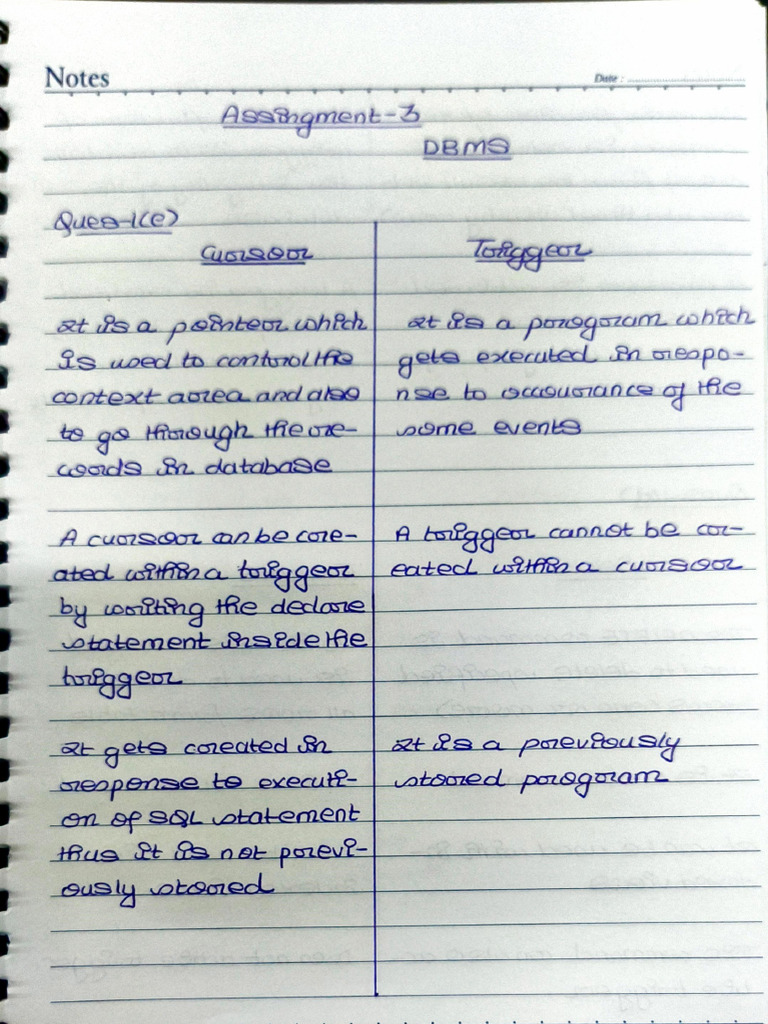 Notes
Date :
Assingment-3
DBMS
Ques-1(e)
Cursor
It is a pointer which
is used to control the
context area and also
to go through the re-
cords in database
A cursor can be cre-
ated within a trigger
by writing the declare
statement inside the
trigger
It gets created in
response to executi-
on of SQL statement
thus it is not previ-
ously stored
Trigger
It is a program which
gets executed in respo-
nse to occurance of the
some events
A trigger cannot be cr-
eated within a cursor
It is a previously
stored program